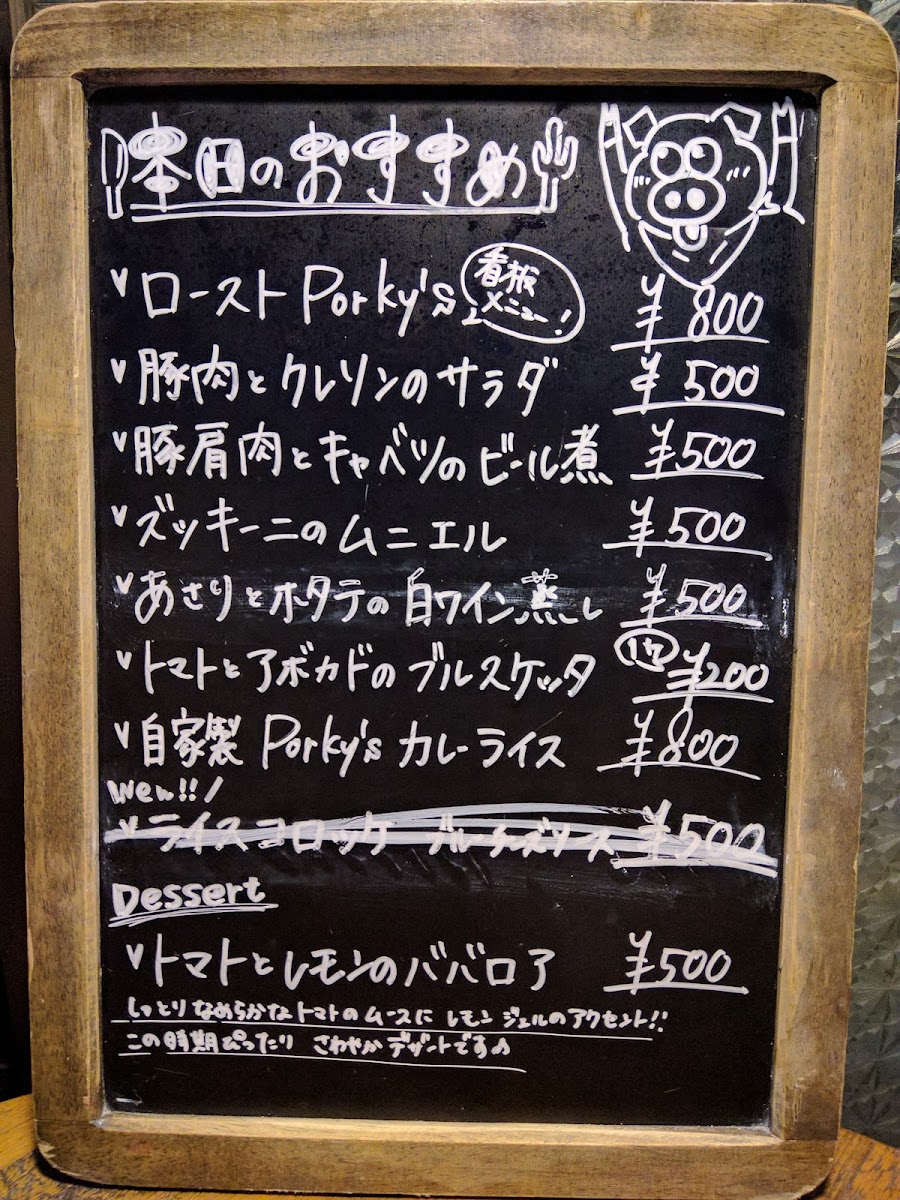 本日のおすすめ
ローストPorky's 看板メニュー! ¥800
豚肉とクレソンのサラダ ¥500
豚肩肉とキャベツのビール煮 ¥500
ズッキーニのムニエル ¥500
あさりとホタテの白ワイン蒸し ¥500
トマトとアボカドのブルスケッタ 1P ¥200
自家製 Porky's カレーライス ¥800
New!!
ライスコロッケ ブルーチーズソース ¥500
Dessert
トマトとレモンのババロア ¥500
しっとりなめらかなトマトのムースに レモンジェルのアクセント!!
この時期ぴったり さわやかデザートです♪